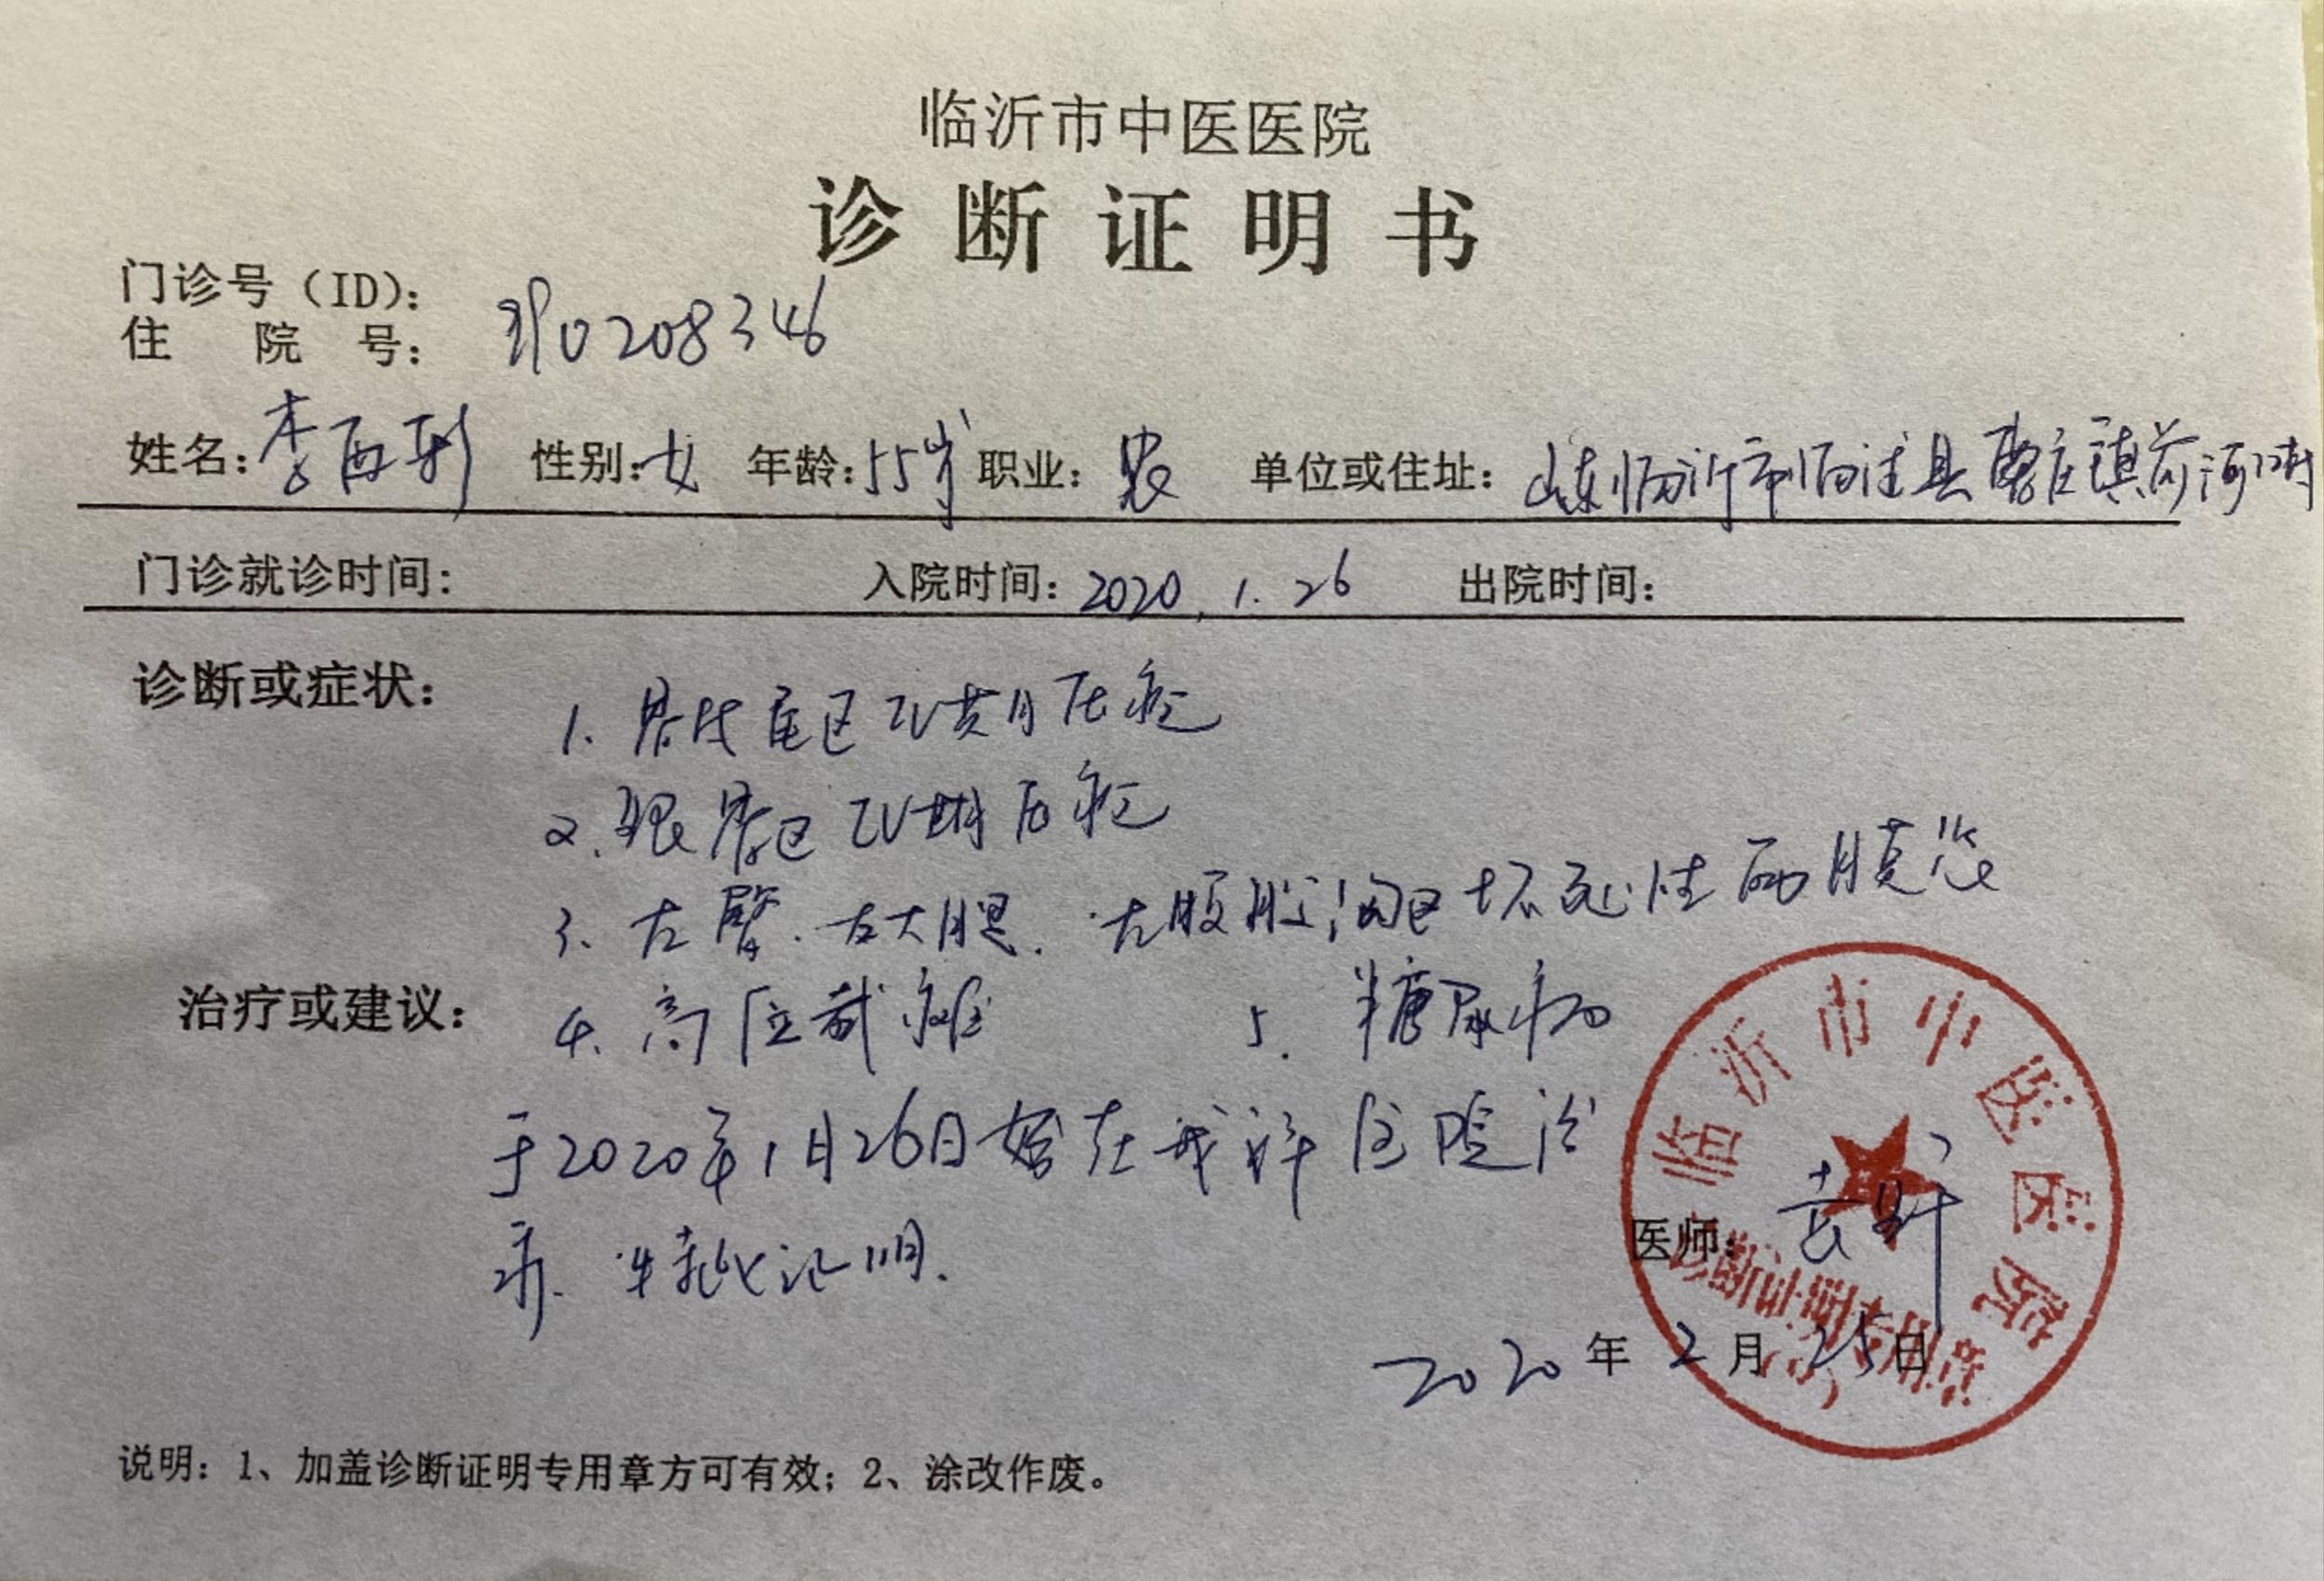 临沂市中医医院
诊断证明书
门诊号（ID）：
住院号： 0208346
姓名：李西彩 性别：女 年龄：55岁 职业：农 单位或住址：山东临沂市临沭县曹庄镇前河口村
门诊就诊时间： 入院时间：2020.1.26 出院时间：
诊断或症状：
1. 骶尾区IV期压疮
2. 骶区IV期压疮
3. 左臀.左大腿.左腹股沟区坏死性筋膜炎
治疗或建议：
4. 高位截瘫 5. 糖尿病
于2020年1月26日始在我科住院治
疗. 特此证明.
医师：
2020年2月25日
临沂市中医医院
诊断证明专用章
说明：1、加盖诊断证明专用章方可有效；2、涂改作废。